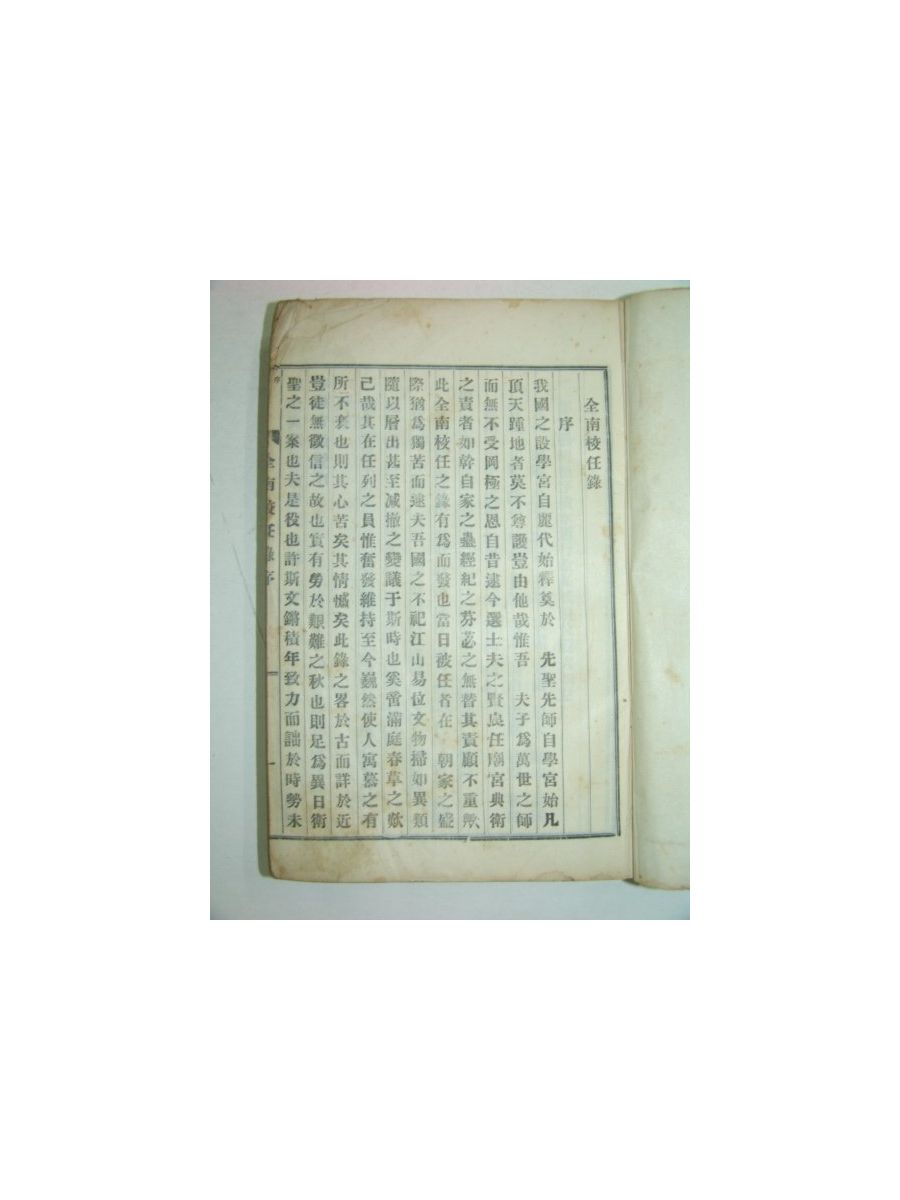 全南校任錄
序
我國之設學宮自麗代始釋奠於 先聖先師自學宮始凡
頂天踵地者莫不尊護豈由他哉惟吾 夫子爲萬世之師
而無不受罔極之恩自昔逮今選士夫之賢良任廟宮典衛
之責者如幹自家之蠱經紀之芬苾之無替其責顧不重歟
此全南校任之錄有爲而發也當日被任者在 朝家之盛
際猶爲獨苦而逮夫吾國之不祀江山易位文物掃如異類
隨以層出甚至減撤之變議于斯時也奚啻滿庭春草之歎
己哉其在任列之員惟奮發維持至今巍然使人寓慕之有
所不衰也則其心苦矣其情慽矣此錄之畧於古而詳於近
豈徒無徵信之故也實有勞於艱難之秋也則足爲異日衛
聖之一案也夫是役也許斯文鏘積年致力而詘於時勞未
全南校任錄序
一